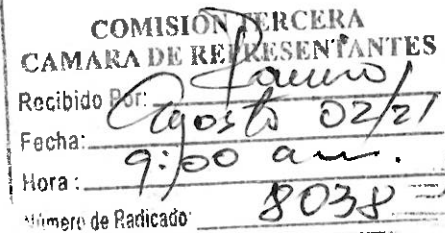 COMISIÓN TERCERA
CAMARA DE REPRESENTANTES
Recibido Por:
Fecha: Agosto 02/21
Hora: 9:00 am.
Número de Radicado: 8038